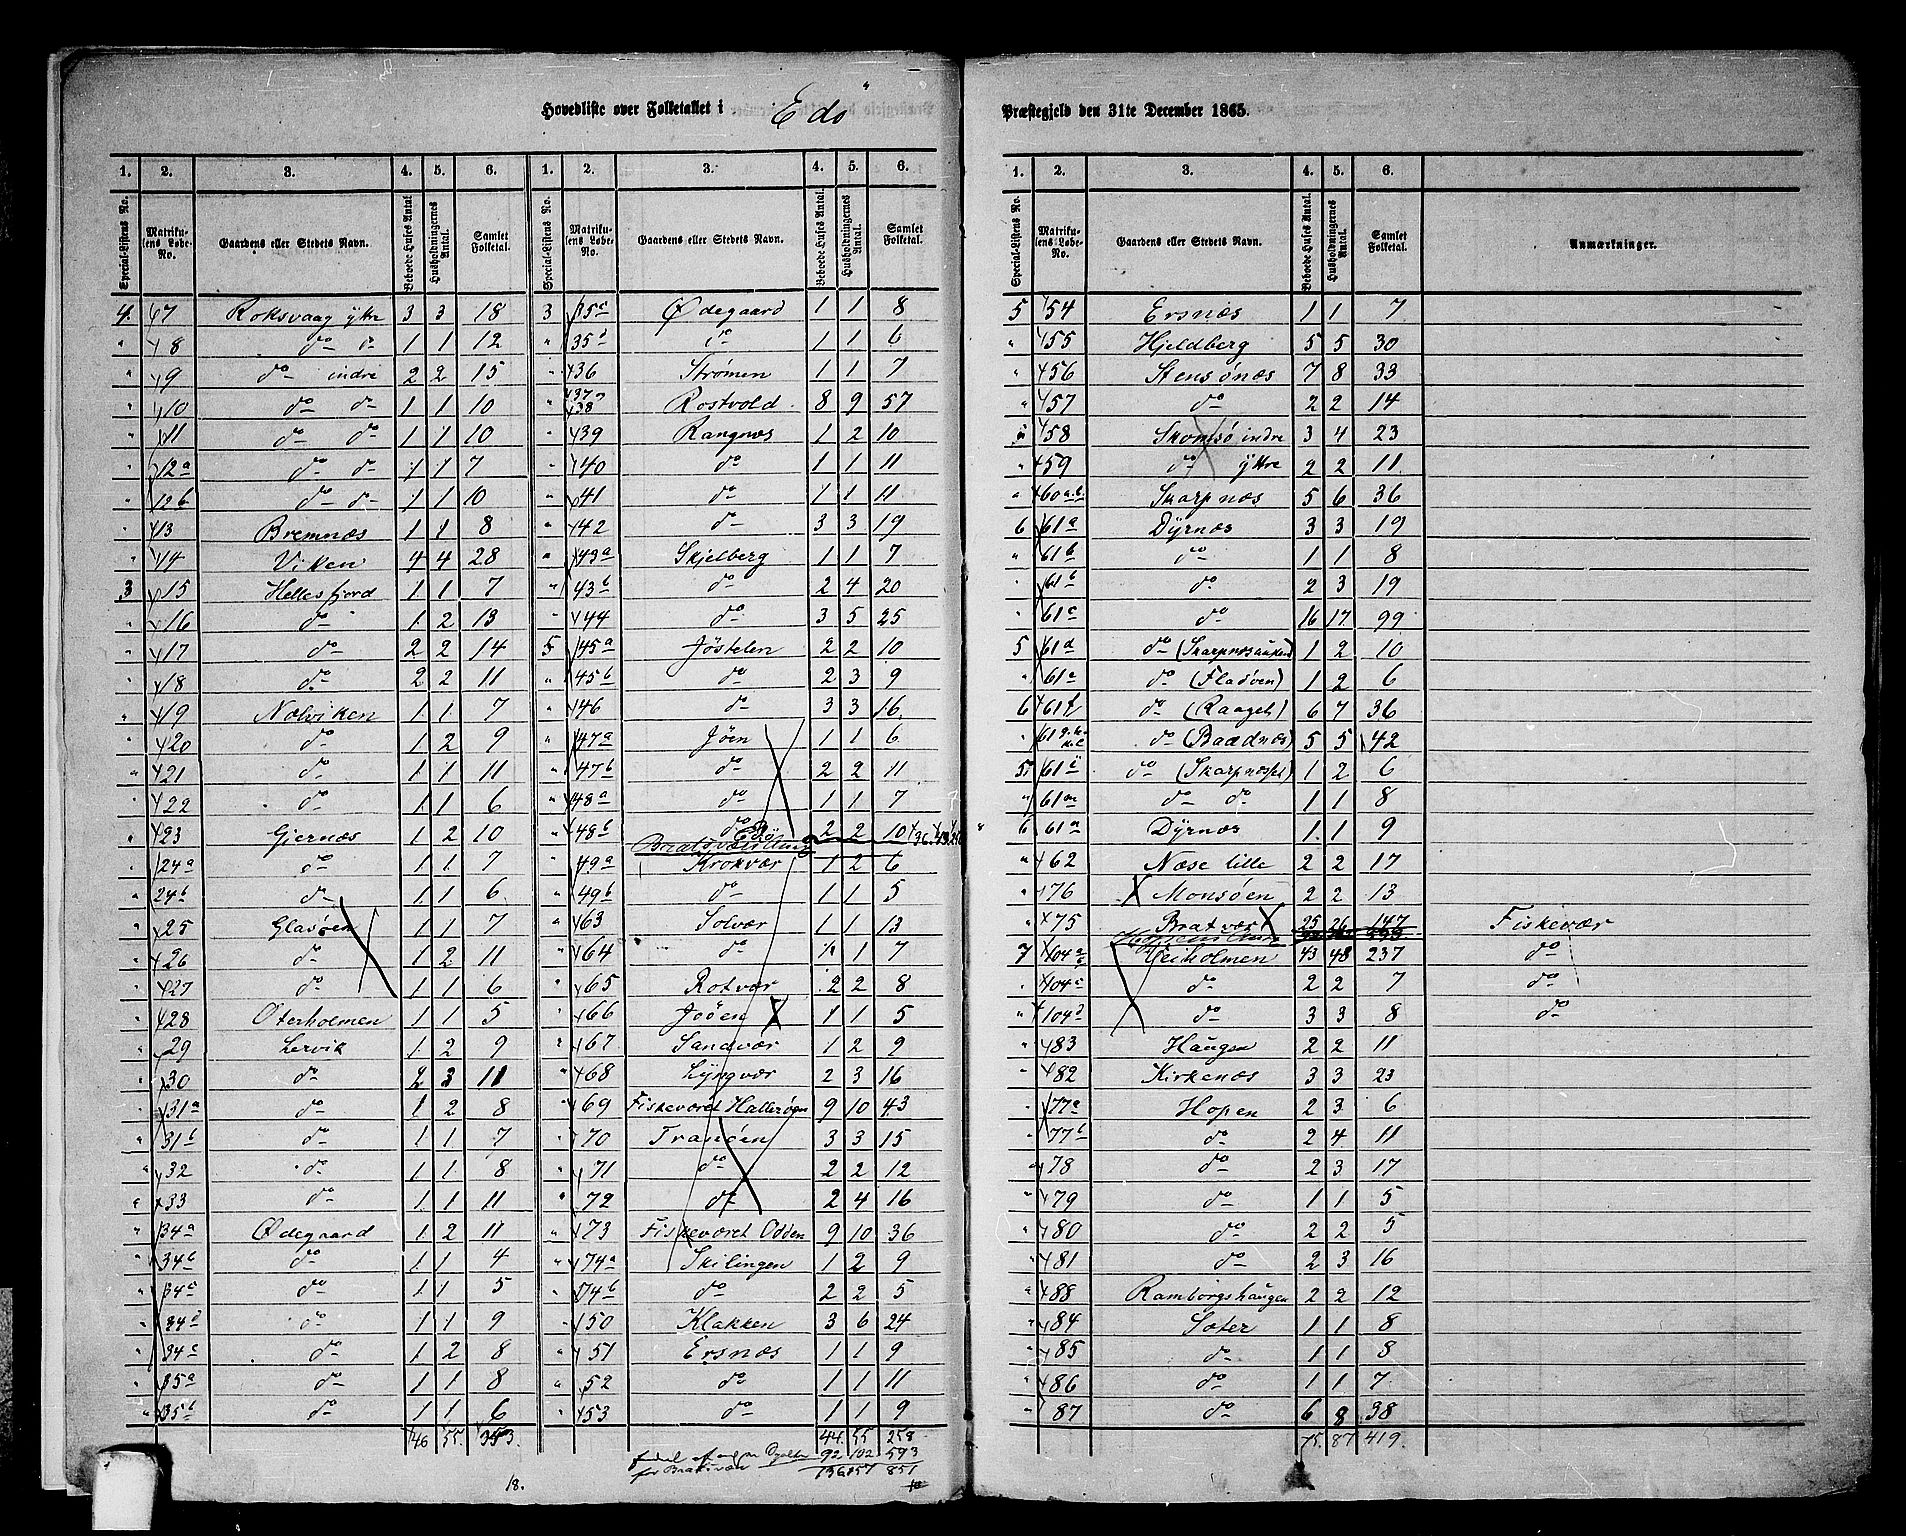 Hovedliste over Folketallet i Edö Præstegjeld den 31te December 1865.
1. 2. 3. 4. 5. 6. 1. 2. 3. 4. 5. 6.
Special-Listens No. Matrikulens Løbe-No. Gaardens eller Stedets Navn. Beboede Huses Antal. Husholdningernes Antal. Samlet Folketal. Special-Listens No. Matrikulens Løbe-No. Gaardens eller Stedets Navn. Beboede Huses Antal. Husholdningernes Antal. Samlet Folketal.
4. 7 Roksvaag yttre 3 3 18
" 8 do do 1 1 12
" 9 do indre 2 2 15
" 10 do do 1 1 10
" 11 do do 1 1 10
" 12a do do 1 1 7
" 12b do do 1 1 10
" 13 Bremnæs 1 1 8
" 14 Viken 4 4 28
3 15 Hellesfjord 1 1 7
" 16 do 1 2 13
" 17 do 2 2 14
" 18 do 2 2 11
" 19 Nælviken 1 1 7
" 20 do 1 2 9
" 21 do 1 1 11
" 22 do 1 1 6
" 23 Gjernæs 1 2 10
" 24a do 1 1 7
" 24b do 1 1 6
" 25 Glasöen 1 1 7
" 26 do 1 2 11
" 27 do 1 1 6
" 28 Oterholmen 1 1 5
" 29 Lervik 1 2 9
" 30 do 2 3 11
" 31a do 1 2 8
" 31b do 1 1 7
" 32 do 1 1 8
" 33 do 1 1 11
" 34a Ødegaard 1 2 11
" 34b do 1 1 4
" 34c do 1 1 5
" 34d do 1 1 9
" 34e do 1 2 8
" 35a do 1 1 8
" 35b do 1 1 6
46 55 353.
18.
3 35c Ødegaard 1 1 8
" 35d do 1 1 6
" 36 Strømen 1 1 7
" 37 38 Rostvold 8 9 57
" 39 Rangnæs 1 2 10
" 40 do 1 1 11
" 41 do 1 1 11
" 42 do 3 3 19
" 43a Skjelberg 1 1 7
" 43b do 2 4 20
" 44 do 3 5 25
5 45a Jöstelen 2 2 10
" 45b do 2 3 9
" 46 do 3 3 16
" 47a Jöen 1 1 6
" 47b do 2 2 11
" 48a do 1 1 7
" 48b do 2 2 10
" 49a Krokvær 1 2 6
" 49b do 1 1 5
" 63 Solvær 1 1 13
" 64 do 1 1 7
" 65 Rotvær 2 2 8
" 66 Jöen 1 1 5
" 67 Sandvær 1 2 9
" 68 Lyngvær 2 3 16
" 69 Fiskeværet Hallerögen 9 10 43
" 70 Tranöen 3 3 15
" 71 do 2 2 12
" 72 do 2 4 16
" 73 Fiskeværet Odden 9 10 36
" 74a Skilingen 1 2 9
" 74b do 2 2 5
" 50 Klakken 3 6 24
" 51 Ersnæs 1 1 9
" 52 do 1 1 11
" 53 do 1 1 9
44. 55 258.
92 102 593
for Bratsvær 136 157 851
1. 2. 3. 4. 5. 6.
Special-Listens No. Matrikulens Løbe-No. Gaardens eller Stedets Navn. Beboede Huses Antal. Husholdningernes Antal. Samlet Folketal. Anmærkninger.
5 54 Ersnæs 1 1 7
" 55 Hjeldberg 5 5 30
" 56 Stensönæs 7 8 33
" 57 do 2 2 14
" 58 Skomsö indre 3 4 23
" 59 do yttre 2 2 11
" 60a.b. Skarpnæs 5 6 36
6 61a Dyrnæs 3 3 19
" 61b do 1 1 8
" 61b do 2 3 19
" 61c do 16 17 99
5 61d do 1 2 10
" 61e do (Fladöen) 1 2 6
6 61f do (Raageb) 6 7 36
" 61g.h. do (Baadnæs) 5 5 42
5 61i do 1 2 6
" 61m do do 1 1 8
6 61n Dyrnæs 1 1 9
" 62 Næse lille 2 2 17
" 76 Monsöen 2 2 13
" 75 Bratvær 25 26 147 Fiskevær
7 104 Veiholmen 43 48 237 do
" 104c do 2 2 7 do
" 104d do 3 3 8 do
" 83 Haugen 2 2 11
" 82 Kirkenæs 3 3 23
" 77a Hopen 2 3 6
" 77b do 2 4 11
" 78 do 2 3 17
" 79 do 1 1 5
" 80 do 2 2 5
" 81 do 2 3 16
" 88 Ramborgshaugen 2 2 12
" 84 Soter 1 1 8
" 85 do 1 1 8
" 86 do 1 1 7
" 87 do 6 8 38
75. 87 419.